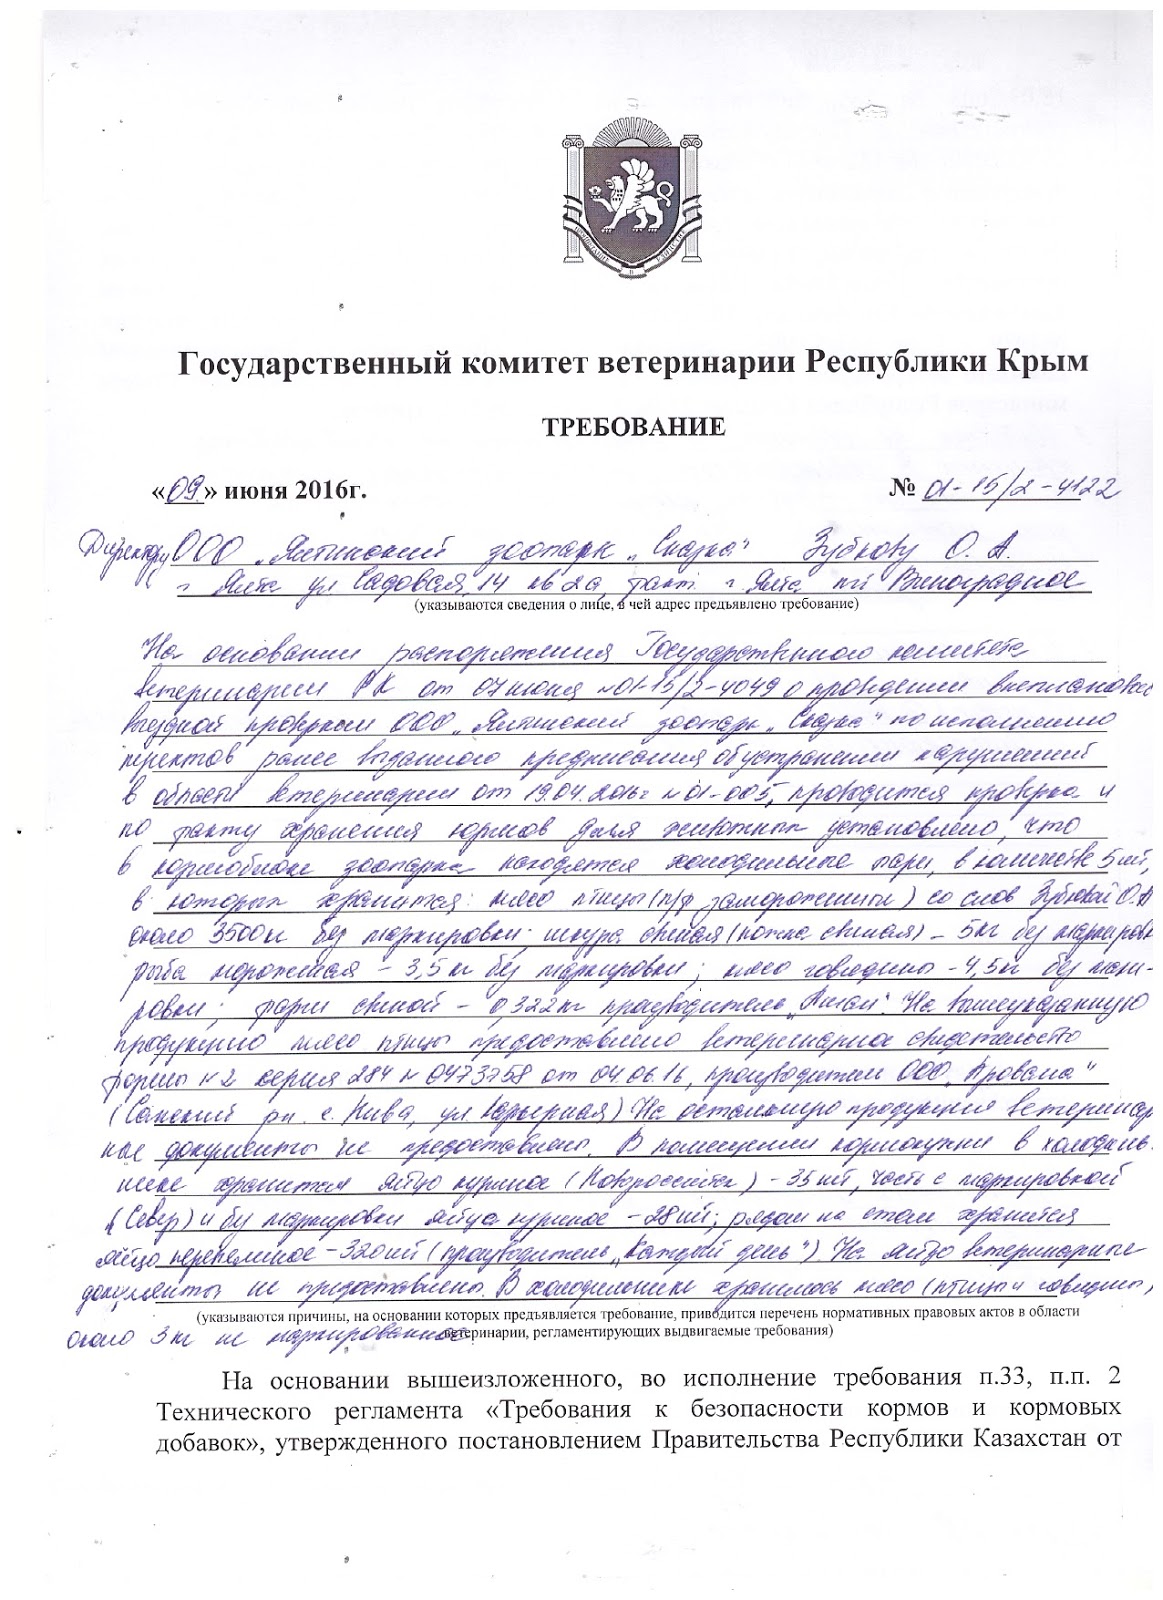 Государственный комитет ветеринарии Республики Крым
ТРЕБОВАНИЕ
«09» июня 2016г. № 01-15/2-4122
Директору ООО „Ялтинский зоопарк „Сказка" Зубкову О. А.
г Ялта ул Садовая, 14 кв 2а, факт. г Ялта пгт Виноградное
(указываются сведения о лице, в чей адрес предъявлено требование)
На основании распоряжения Государственного комитета
ветеринарии РК от 07 июня №01-15/2-4049 о проведении внеплановой
выездной проверки ООО „Ялтинский зоопарк „Сказка" по исполнению
пунктов ранее выданного предписания об устранении нарушений
в области ветеринарии от 19.04.2016г №01-005, проводится проверка и
по факту хранения кормов для животных установлено, что
в кормоблоке зоопарка находятся холодильные лари, в количестве 5 шт,
в которых хранится: мясо птицы (п/ф замороженный) со слов Зубкова О.А
около 3500 кг без маркировки; шкура свиная (ножка свиная) – 5 кг без маркиров
рыба мороженая – 3,5 кг без маркировки; мясо говядины – 4,5 кг без марки-
ровки; фарш свиной – 0,322 кг, производитель. На вышеуказанную
продукцию мясо птицы предоставлено ветеринарное свидетельство
формы №2 серия 284 № 0473758 от 04.06.16, производителем ООО „Провама"
(Сакский рн. с. ул Карьерная) На остальную продукцию ветеринар
ные документы не предоставлены. В помещении кормокухни в холодиль-
нике хранится яйцо куриное (Новороссийск) – 35 шт, часть с маркировкой
(Север) и без маркировки яйца куриное – 28 шт; рядом на столе хранится
яйцо перепелиное – 320 шт (производитель „Каждый день") На яйцо ветеринарные
документы не предоставлены. В холодильнике хранилось мясо (птицы и говядины)
(указываются причины, на основании которых предъявляется требование, приводится перечень нормативных правовых актов в области
около 3 кг не маркированное ветеринарии, регламентирующих выдвигаемые требования)
На основании вышеизложенного, во исполнение требования п.33, п.п. 2
Технического регламента «Требования к безопасности кормов и кормовых
добавок», утвержденного постановлением Правительства Республики Казахстан от